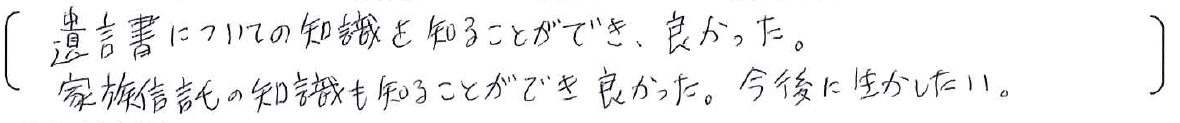 遺言書についての知識を知ることができ、良かった。
家族信託の知識も知ることができ良かった。今後に生かしたい。